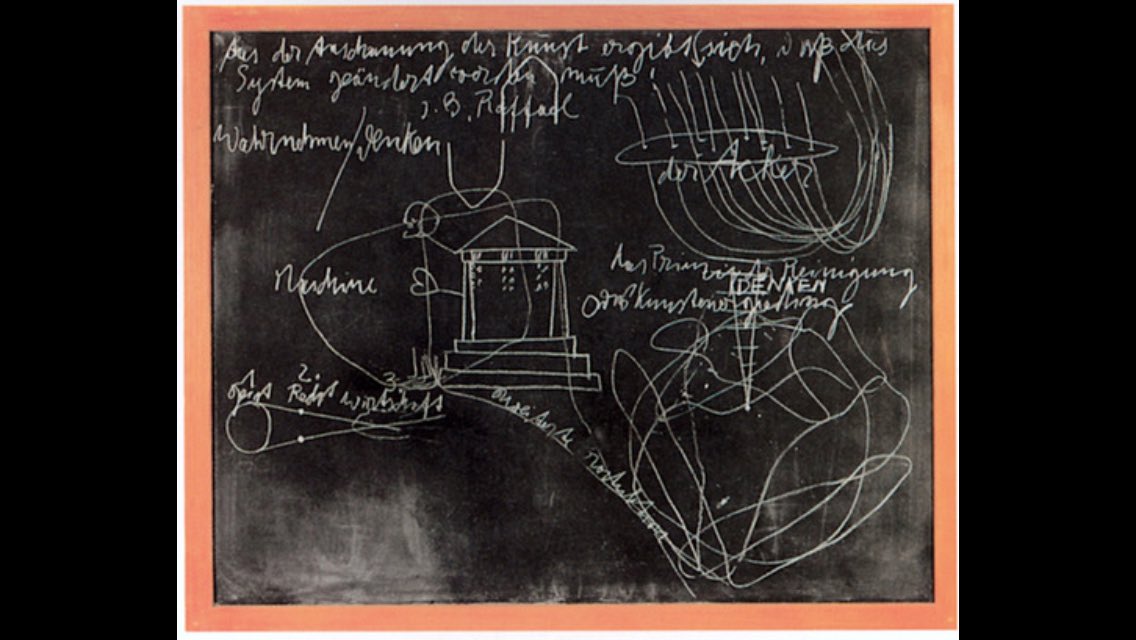 Aus der Anschauung der Kunst ergibt sich, daß das
System geändert werden muß!
z.B. Raffael
Wahrnehmen/Denken
der Acker
Maschine
das Prinzip der Reinigung
DENKEN
oder
1 2. 3.
Geist Recht Wirtschaft